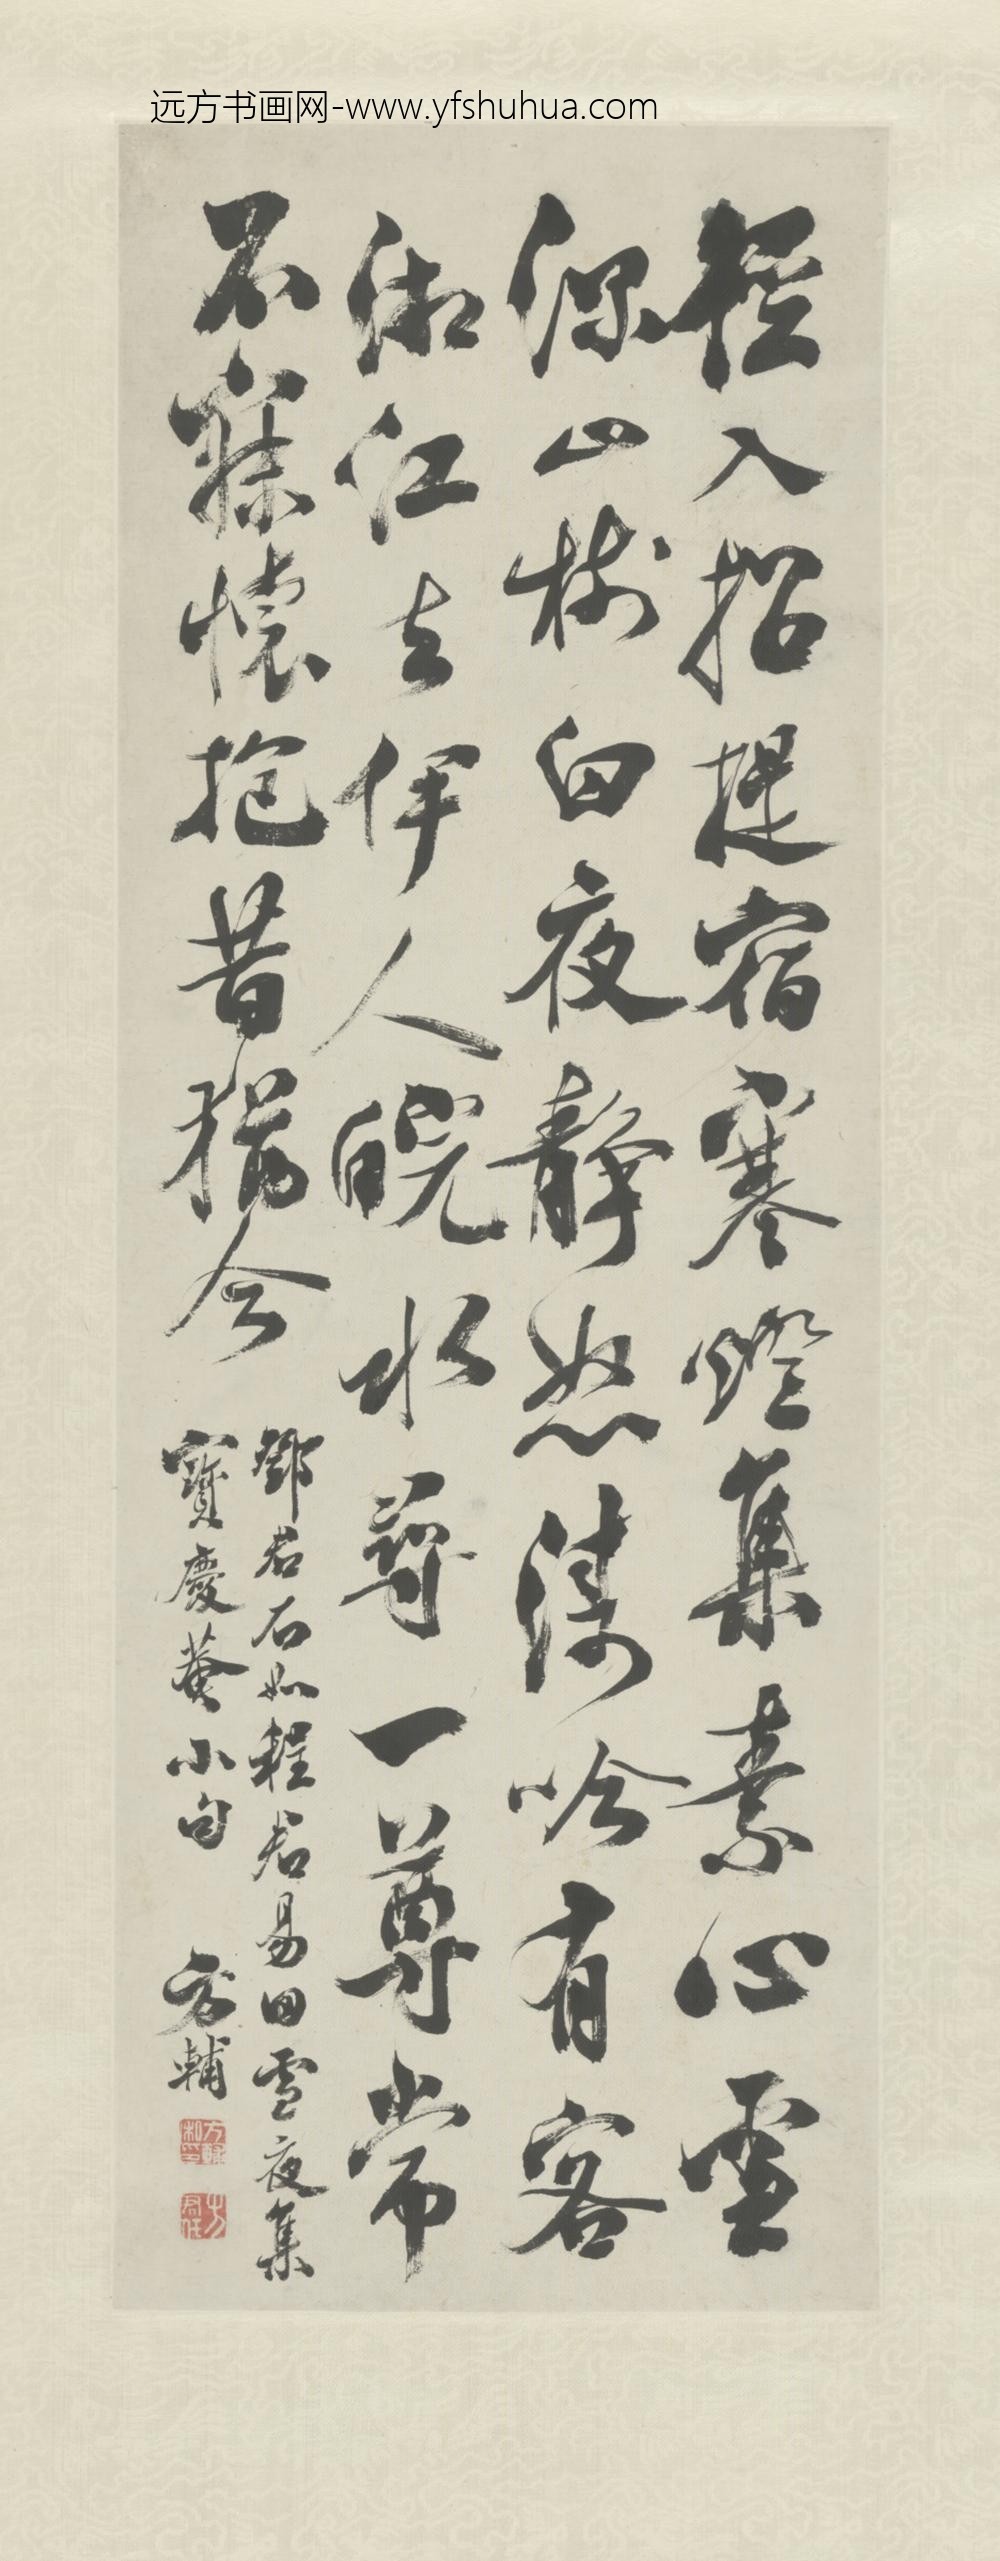 远方书画网-www.yfshuhua.com
径入招提宿寒燈集素心雪
深山樹白夜靜怒濤吟有客
湘江去伊人皖水尋一尊常
不寐懷抱昔猶今
鄧君石如程君易田雪夜集
寶慶菴小句 方輔